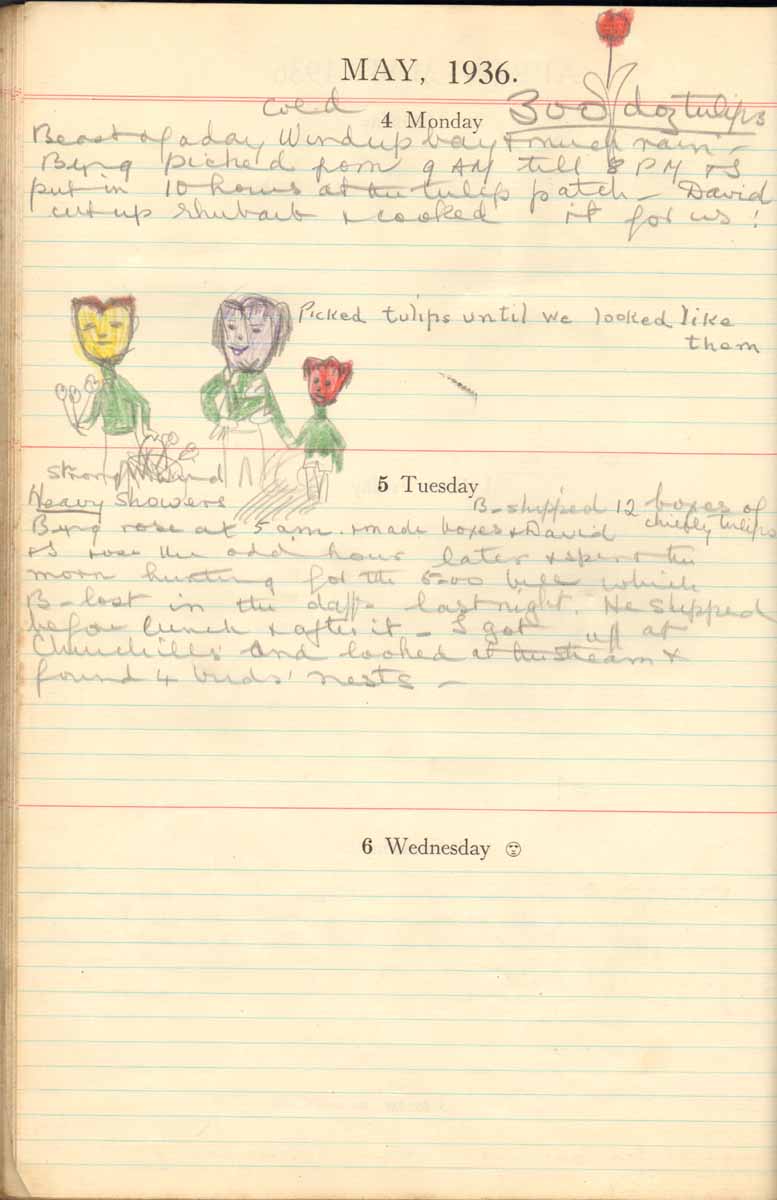 MAY, 1936.
cold
4 Monday
300 doz tulips
Beast of a day Wind up bay & much rain -
Byng picked from 9 AM till 8 PM & S
put in 10 hours at the tulip patch - David
cut up rhubarb & cooked it for us!
Picked tulips until we looked like
them
strong wind
5 Tuesday
Heavy Showers
B- shipped 12 boxes of
chiefly tulips
Byng rose at 5 am. & made boxes & David
& S rose the odd hour later & spent the
morn hunting for the 5.00 bill which
B- lost in the daffs last night. He shipped
before lunch & after it - S got up at
Churchills' and looked at the stream &
found 4 birds' nests -
6 Wednesday